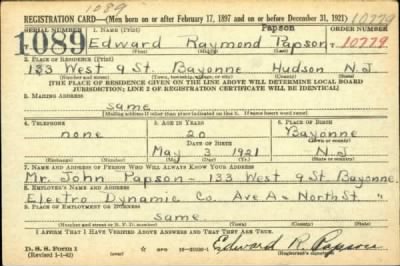 1089
REGISTRATION CARD—(Men born on or after February 17, 1897 and on or before December 31, 1921) 10779
SERIAL NUMBER 1. NAME (Print) Papson ORDER NUMBER
1089 Edward Raymond Papson 10779
(First) (Middle) (Last)
2. PLACE OF RESIDENCE (Print)
133 West 9 St. Bayonne Hudson N.J
(Number and street) (Town, township, village, or city) (County) (State)
[THE PLACE OF RESIDENCE GIVEN ON THE LINE ABOVE WILL DETERMINE LOCAL BOARD
JURISDICTION; LINE 2 OF REGISTRATION CERTIFICATE WILL BE IDENTICAL]
3. MAILING ADDRESS
same
[Mailing address if other than place indicated on line 2. If same insert word same]
4. TELEPHONE 5. AGE IN YEARS 6. PLACE OF BIRTH
none 20 Bayonne
DATE OF BIRTH (Town or county)
May 3 1921 N.J
(Exchange) (Number) (Mo.) (Day) (Yr.) (State or country)
7. NAME AND ADDRESS OF PERSON WHO WILL ALWAYS KNOW YOUR ADDRESS
Mr. John Papson - 133 West 9 St Bayonne
8. EMPLOYER'S NAME AND ADDRESS
Electro Dynamic Co. Ave A - North St. "
9. PLACE OF EMPLOYMENT OR BUSINESS
same
(Number and street or R. F. D. number) (Town) (County) (State)
I AFFIRM THAT I HAVE VERIFIED ABOVE ANSWERS AND THAT THEY ARE TRUE.
D. S. S. Form 1 GPO 16—21630-1 Edward R. Papson
(Revised 1-1-42) (over) (Registrant's signature)